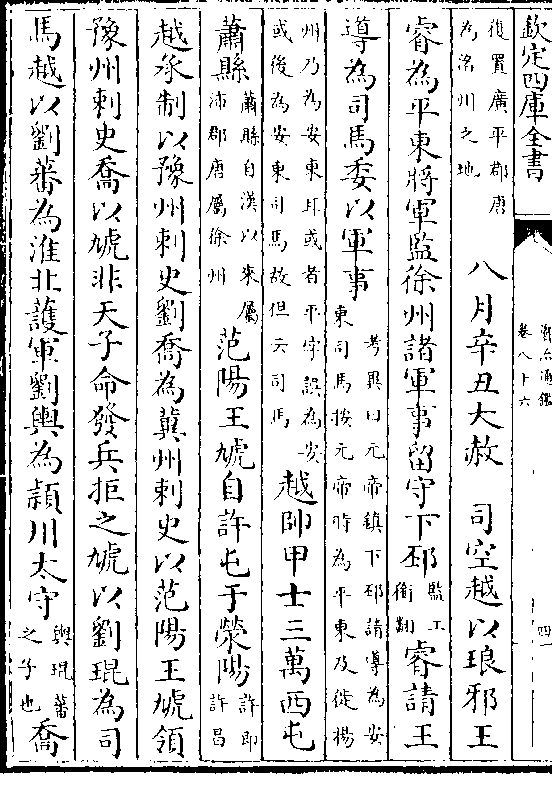 欽定四庫全書
資治通鑑
卷八十六
四
復置廣平郡唐
為洺州之地
八月辛丑大赦　司空越以琅邪王
睿為平東將軍監徐州諸軍事留守下邳監工
銜翻睿請王
導為司馬委以軍事考異曰元帝鎮下邳請導為安
東司馬按元帝時為平東及徙揚
州乃為安東耳或者平字誤為安
或後為安東司馬故但云司馬越帥甲士三萬西屯
蕭縣蕭縣自漢以來屬
沛郡唐屬徐州范陽王虓自許屯于滎陽許即
許昌
越承制以豫州刺史劉喬為冀州刺史以范陽王虓領
豫州刺史喬以虓非天子命發兵拒之虓以劉琨為司
馬越以劉蕃為淮北護軍劉輿為潁川太守輿琨蕃
之子也喬